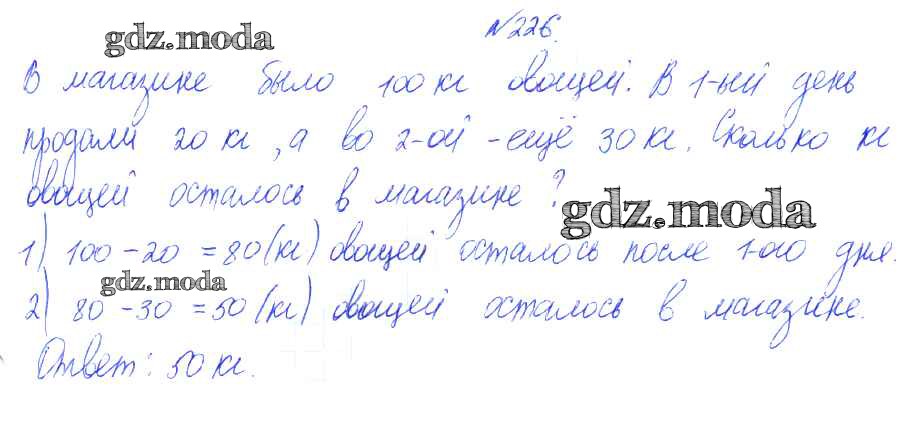 №226.
gdz.moda
В магазине было 100 кг овощей. В 1-ый день
продали 20 кг, а во 2-ой - ещё 30 кг. Сколько кг
овощей осталось в магазине?
gdz.moda
1) 100 - 20 = 80 (кг) овощей осталось после 1-ого дня.
gdz.moda
2) 80 - 30 = 50 (кг) овощей осталось в магазине.
Ответ: 50 кг.